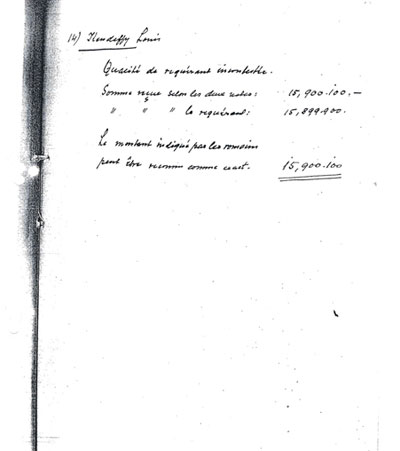 14) Kendeffy Louis
Qualité de requérant incontestée.
Somme reçue selon les deux notes: 15,900.100.—
" " " le requérant: 15,899.900.
Le montant indiqué par les roumains
peut être reconnu comme exact. 15,900.100